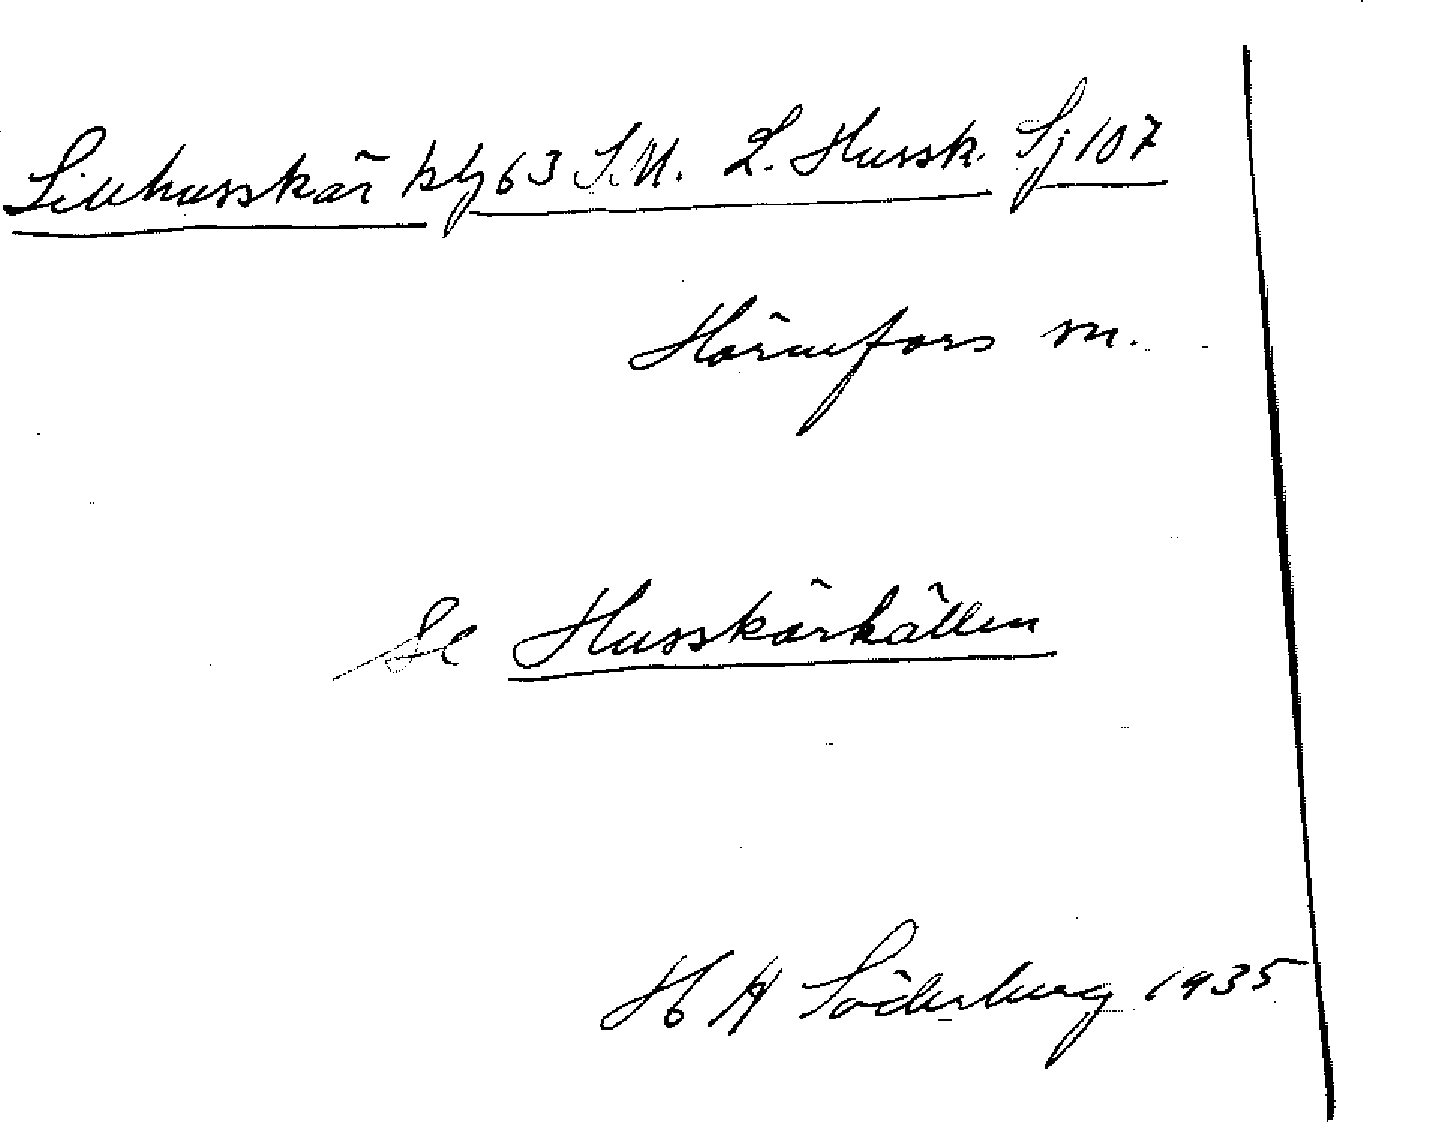 Lillhusskär blz 63 S.M. L. Hussk. Sj 107
Hörnefors sn.
Se Husskärhällen
H Söderberg 1935